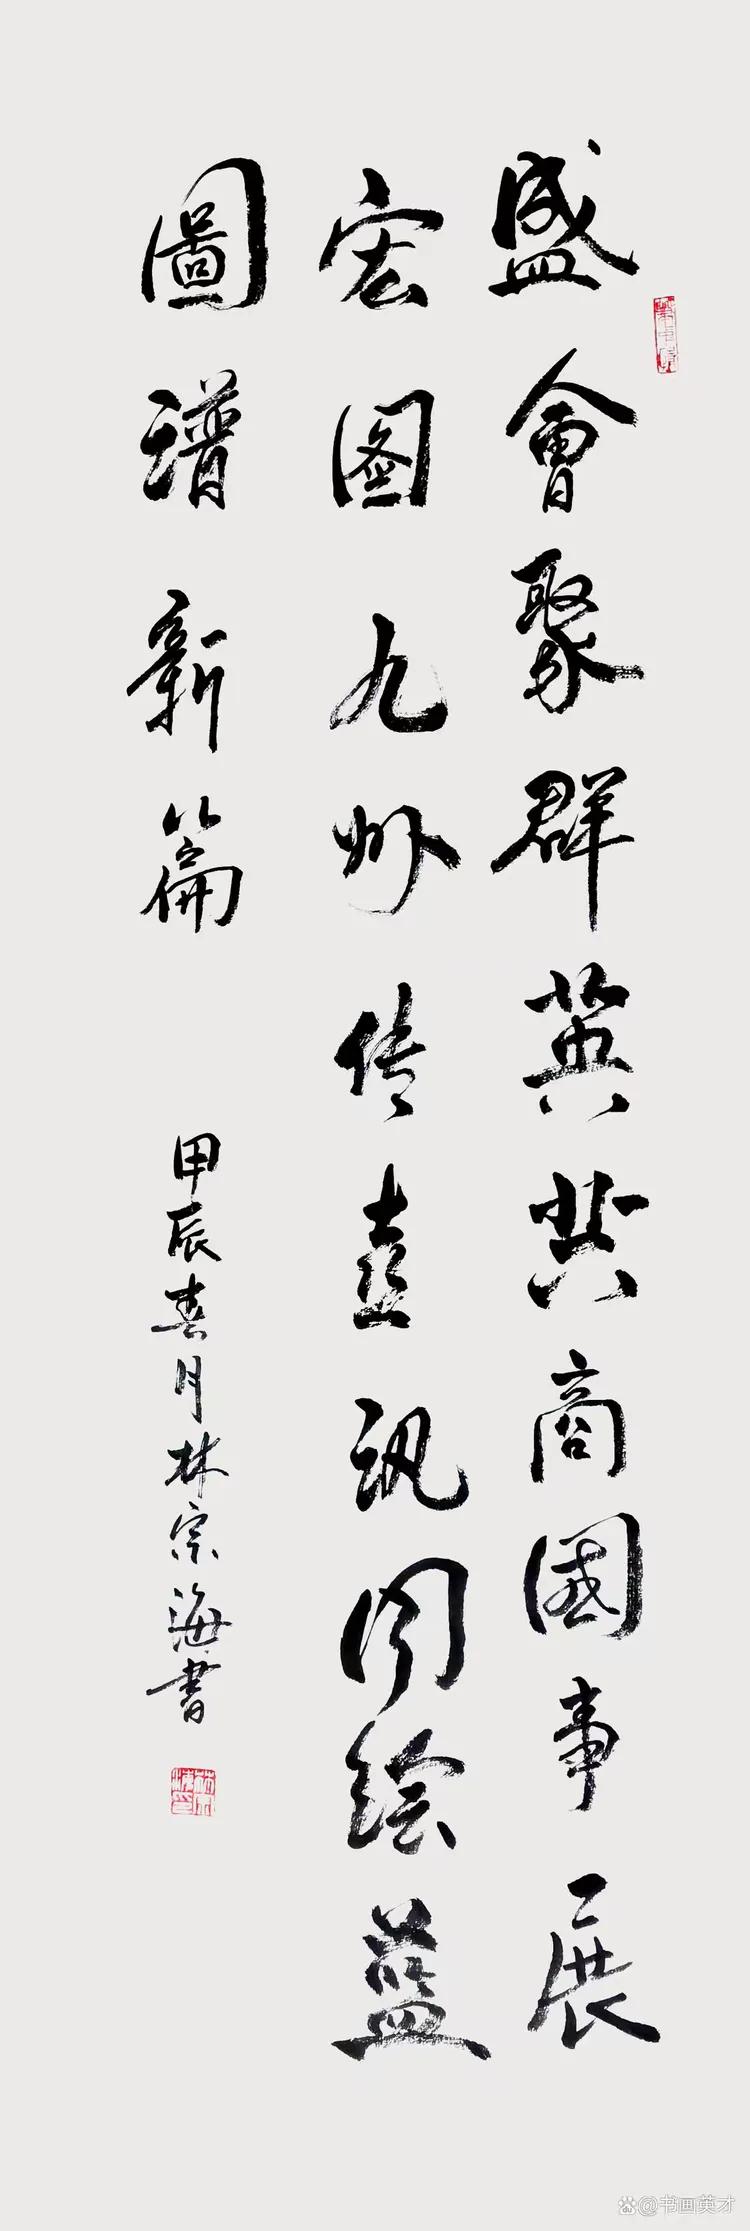 盛會聚群英共商國事展
宏图九州传喜讯同绘蓝
圖譜新篇
甲辰春月林宗海書
@书画英才